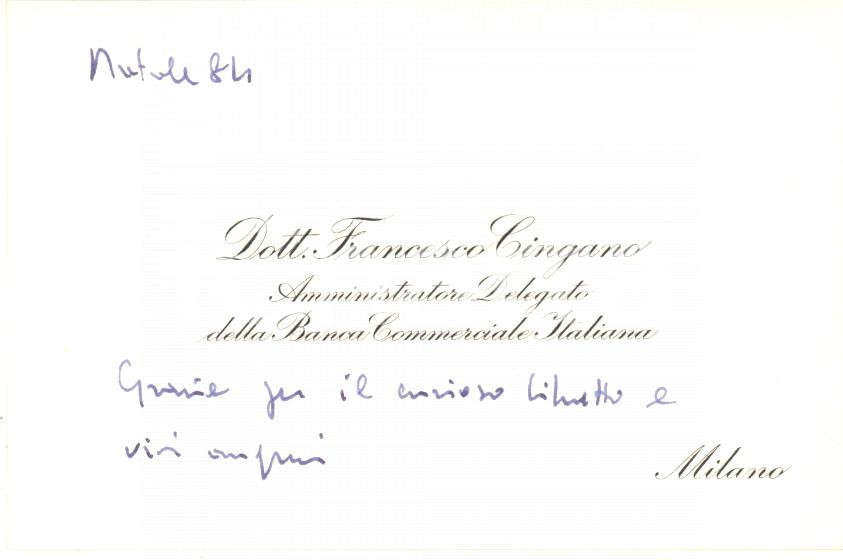 Natale 84
Dott. Francesco Cingano
Amministratore Delegato
della Banca Commerciale Italiana
Grazie per il curioso libretto e
vivi auguri
Milano